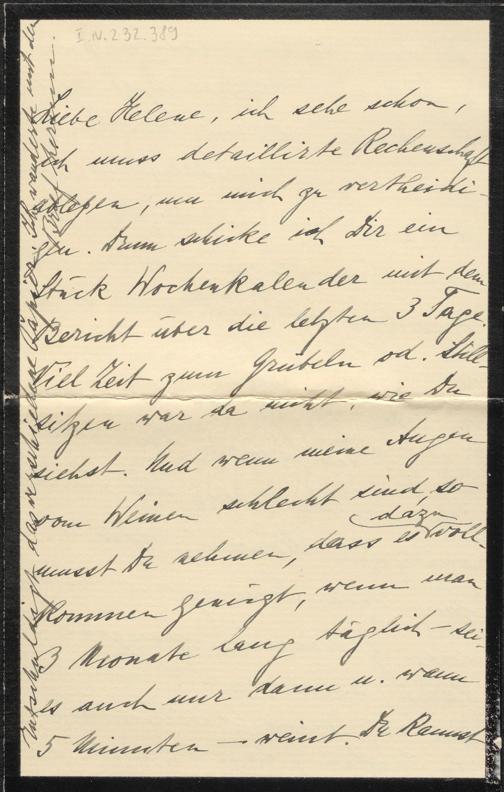 I.N. 232.389
Liebe Helene, ich sehe schon,
ich muss detaillirte Rechenschaft
ablegen, um mich zu vertheidi-
gen. Drum schicke ich Dir ein
Stück Wochenkalender mit dem
Bericht über die letzten 3 Tage.
Viel Zeit zum Grübeln od. Still-
sitzen war da nicht, wie Du
siehst. Und wenn meine Augen
vom Weinen schlecht sind, so
musst Du nehmen, dass es dazu voll-
kommen genügt, wenn man
3 Monate lang täglich – sei
es auch nur dann u. wann
5 Minuten – weint. Du kannst
Entschuldigt das verschiedene Papier. Ich wanderte mit den